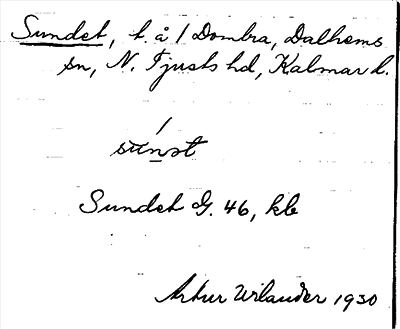 Sundet, t. å / Dombra, Dalhems
sn, N. Tjusts hd, Kalmar l.
Sundet G. 46, kb
Artur Wilander 1930